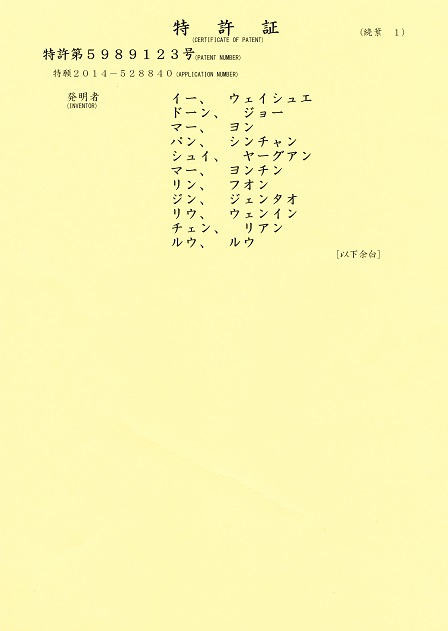 特許証
(CERTIFICATE OF PATENT)
(続葉 1)
特許第5989123号(PATENT NUMBER)
特願2014-528840(APPLICATION NUMBER)
発明者
(INVENTOR)
イー、 ウェイシュエ
ドーン、 ジョー
マー、 ヨン
パン、 シンチャン
シュイ、 ヤーグアン
マー、 ヨンチン
リン、 フオン
ジン、 ジェンタオ
リウ、 ウェンイン
チェン、 リアン
ルウ、 ルウ
[以下余白]